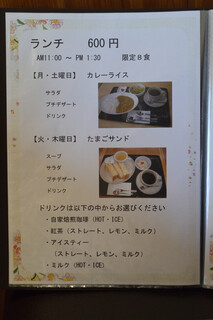 ランチ　600円
AM11:00 ～ PM 1:30　限定8食
【月・土曜日】 カレーライス
サラダ
プチデザート
ドリンク
【火・木曜日】 たまごサンド
スープ
サラダ
プチデザート
ドリンク
ドリンクは以下の中からお選びください
・自家焙煎珈琲（HOT・ICE）
・紅茶（ストレート、レモン、ミルク）
・アイスティー
（ストレート、レモン、ミルク）
・ミルク（HOT・ICE）